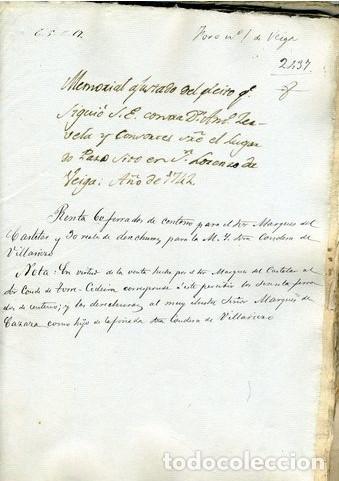 Foro nº 1 de Veiga
2437
Memorial ajustado del pleito q.
siguió S.E. contra D.n Ant.
y Consortes sre el Lugar
do Pazo sito en S.n Lorenzo de
Veiga: Año de 1742
Renta 60 ferrados de centeno para el Sor Marques del
Castelar y 30 reales de derechura para la M. I. Sra Condesa de
Villanizo
Nota: En virtud de la venta hecha por el Sor Marques del Castelar al
Sor Conde de Torre-Cedeira corresponde á este percibir los sesenta ferra
dos de centeno; y las derechuras al muy ilustre Señor Marqués de
como hijo de la finada Sra Condesa de Villanizo
todocoleccion.net